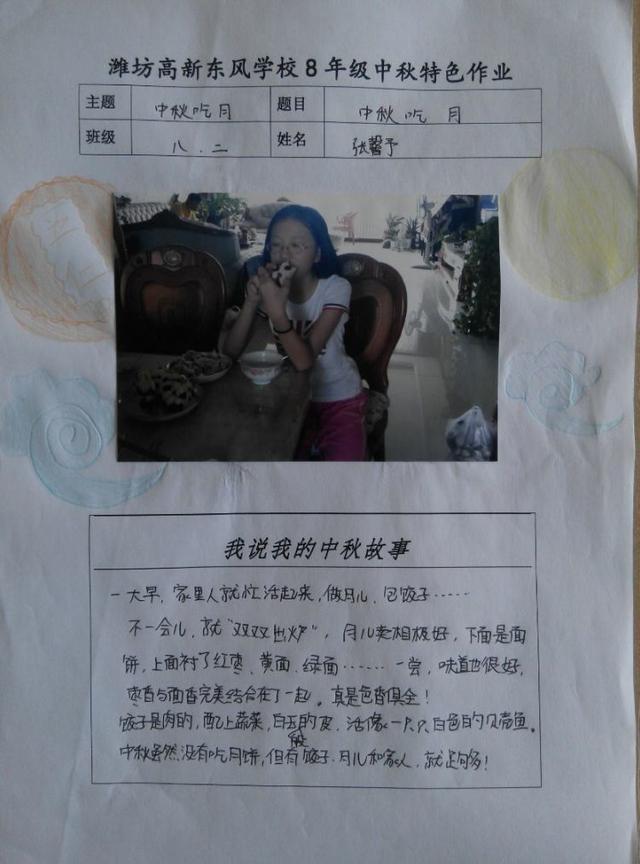 潍坊高新东风学校8年级中秋特色作业
主题 中秋吃月 题目 中秋吃月
班级 八.二 姓名 张馨予
我说我的中秋故事
一大早,家里人就忙活起来,做月儿、包饺子……
不一会儿,就“双双出炉”,月儿卖相极好,下面是面
饼,上面衬了红枣、黄面、绿面……一尝,味道也很好,
枣香与面香完美结合在了一起。真是色香俱全!
饺子是肉的,配上蔬菜,白玉般的皮,活像一只只白色的贝壳鱼。
中秋虽然没有吃月饼,但有饺子、月儿和家人,就足够多!